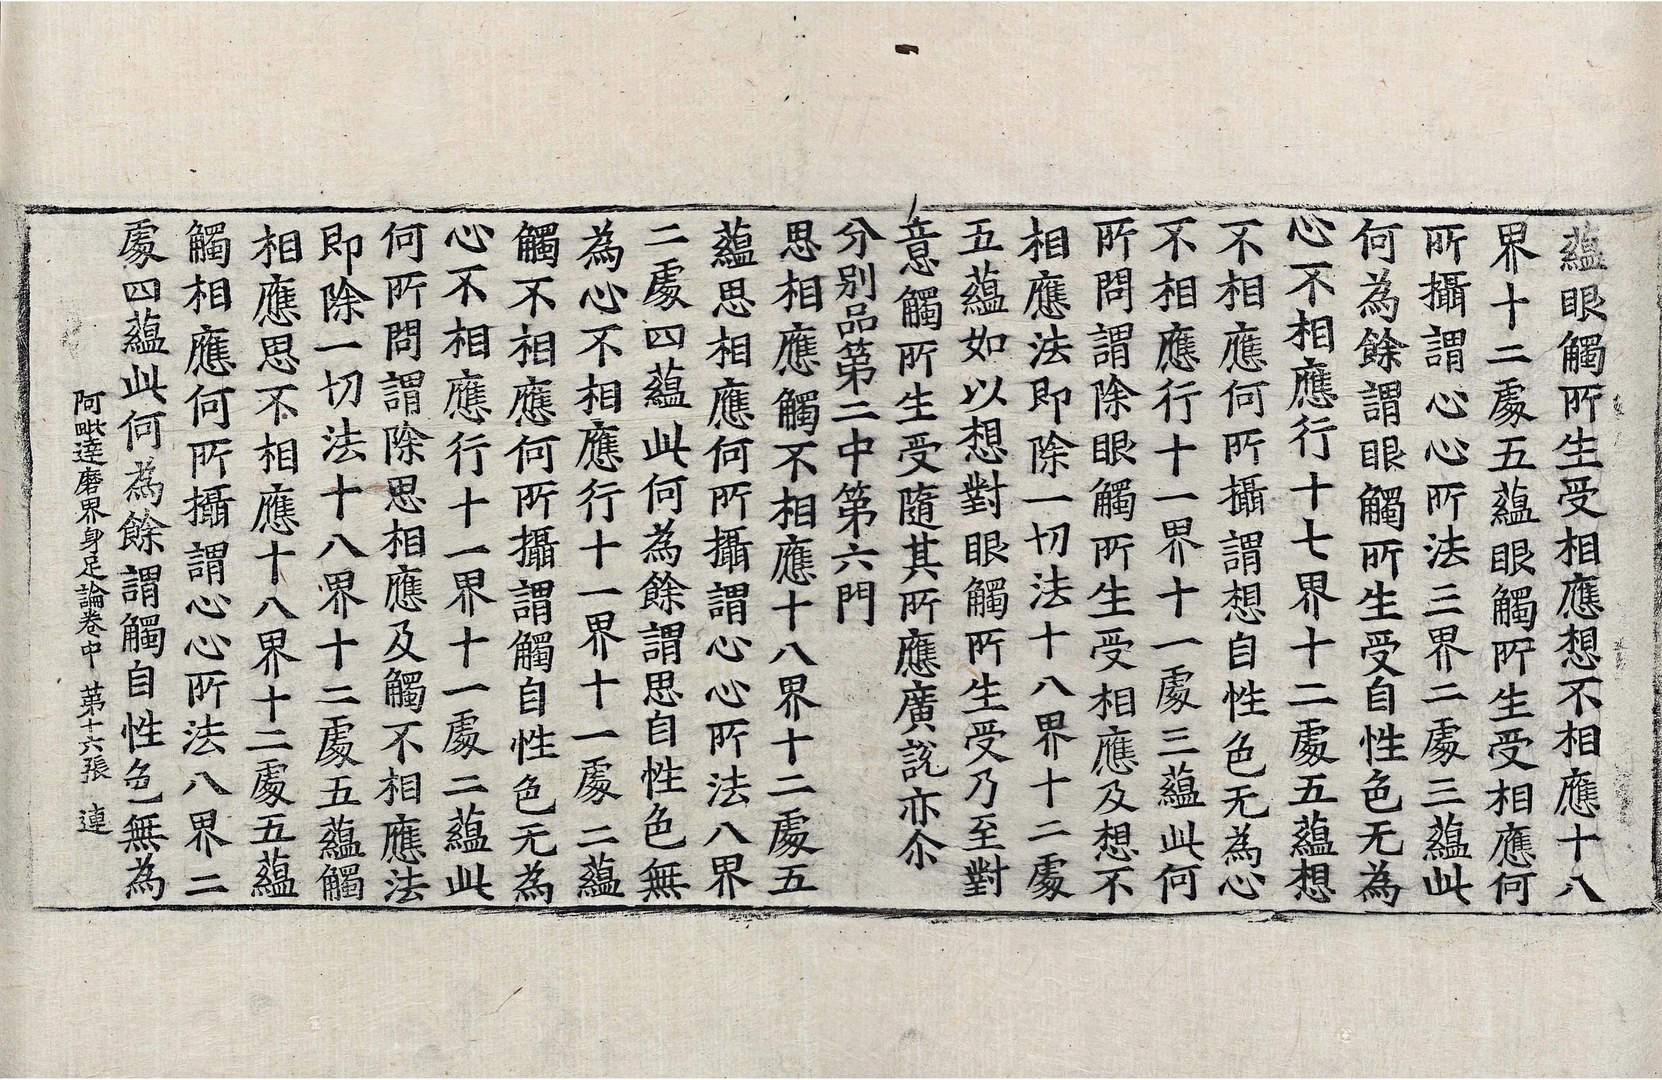 蘊眼觸所生受相應想不相應十八
界十二處五蘊眼觸所生受相應何
所攝謂心心所法三界二處三蘊此
何為餘謂眼觸所生受自性色无為
心不相應行十七界十二處五蘊想
不相應何所攝謂想自性色无為心
不相應行十一界十一處三蘊此何
所問謂除眼觸所生受相應及想不
相應法即除一切法十八界十二處
五蘊如以想對眼觸所生受乃至對
意觸所生受隨其所應廣說亦尒
分別品第二中第六門
思相應觸不相應十八界十二處五
蘊思相應何所攝謂心心所法八界
二處四蘊此何為餘謂思自性色無
為心不相應行十一界十一處二蘊
觸不相應何所攝謂觸自性色无為
心不相應行十一界十一處二蘊此
何所問謂除思相應及觸不相應法
即除一切法十八界十二處五蘊觸
相應思不相應十八界十二處五蘊
觸相應何所攝謂心心所法八界二
處四蘊此何為餘謂觸自性色無為
阿毗達磨界身足論卷中 第十六張 連